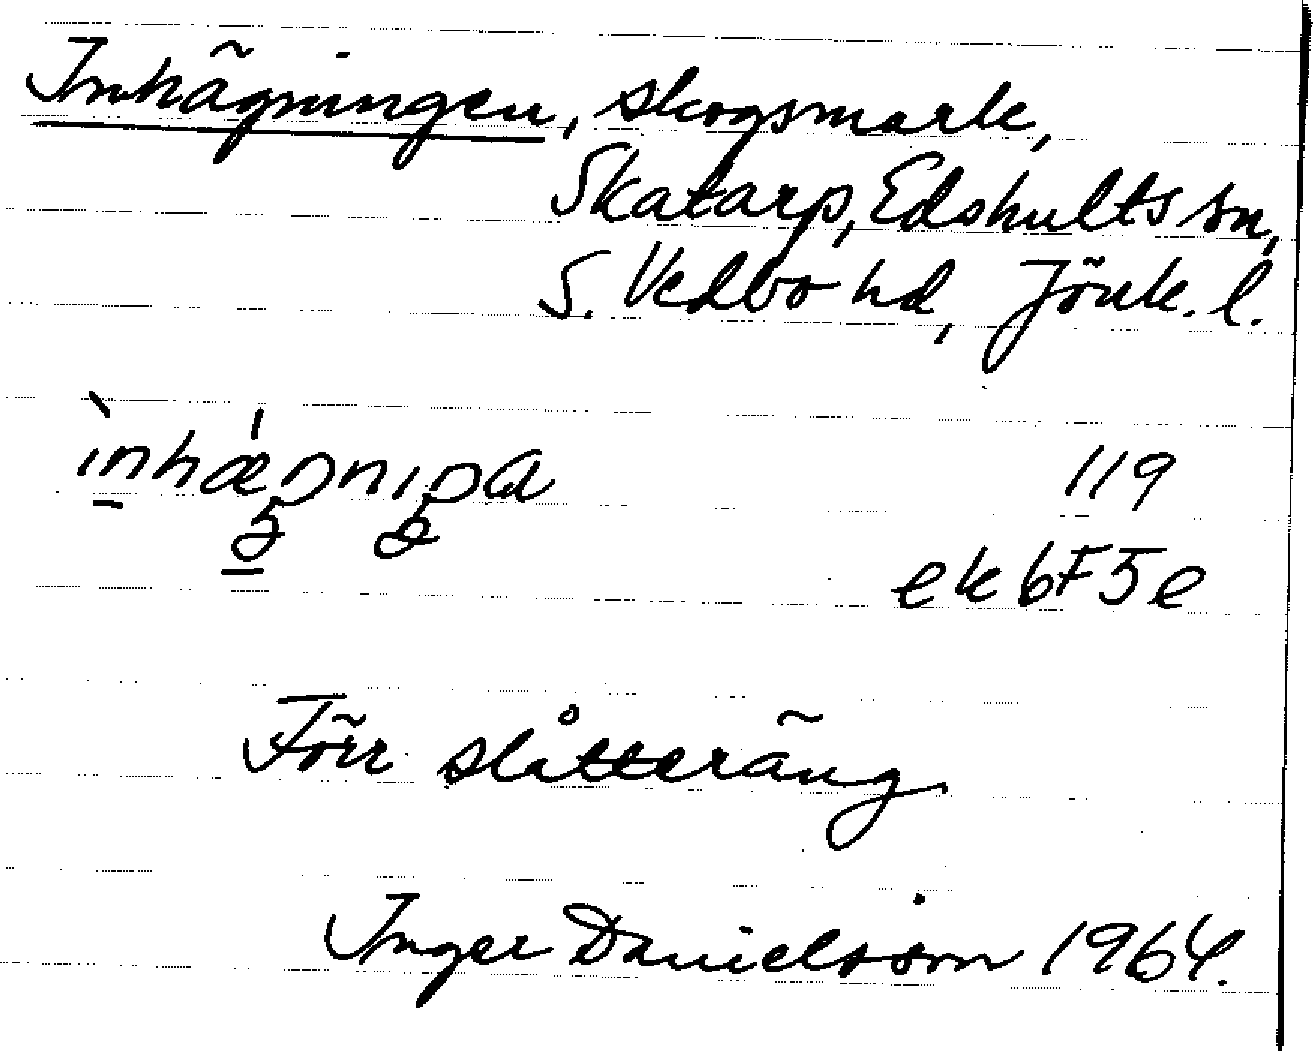 Inhägningen, skogsmark,
Skatarp, Edshults sn,
S. Vedbo hd, Jönk. l.
119
ek 6F5e
Förr slåtteräng
Inger Danielsson 1964.